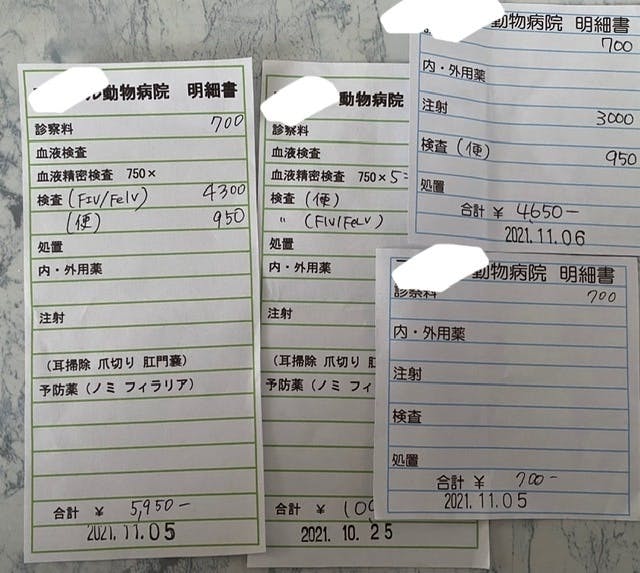 ル動物病院 明細書
診察料 700
血液検査
血液精密検査 750×
検査 (FIV/FelV) 4300
(便) 950
処置
内・外用薬
注射
(耳掃除 爪切り 肛門嚢)
予防薬(ノミ フィラリア)
合計 ¥ 5,950-
2021.11.05
動物病院
診察料
血液検査
血液精密検査 750×5=
検査 (便)
〃 (FIV/FeLV)
処置
内・外用薬
注射
(耳掃除 爪切り 肛
予防薬(ノミ フィ
合計 ¥
2021.10.25
動物病院 明細書
診察料 700
内・外用薬
注射 3000
検査 (便) 950
処置
合計 ¥ 4650-
2021.11.06
動物病院 明細書
診察料 700
内・外用薬
注射
検査
処置
合計 ¥ 700-
2021.11.05